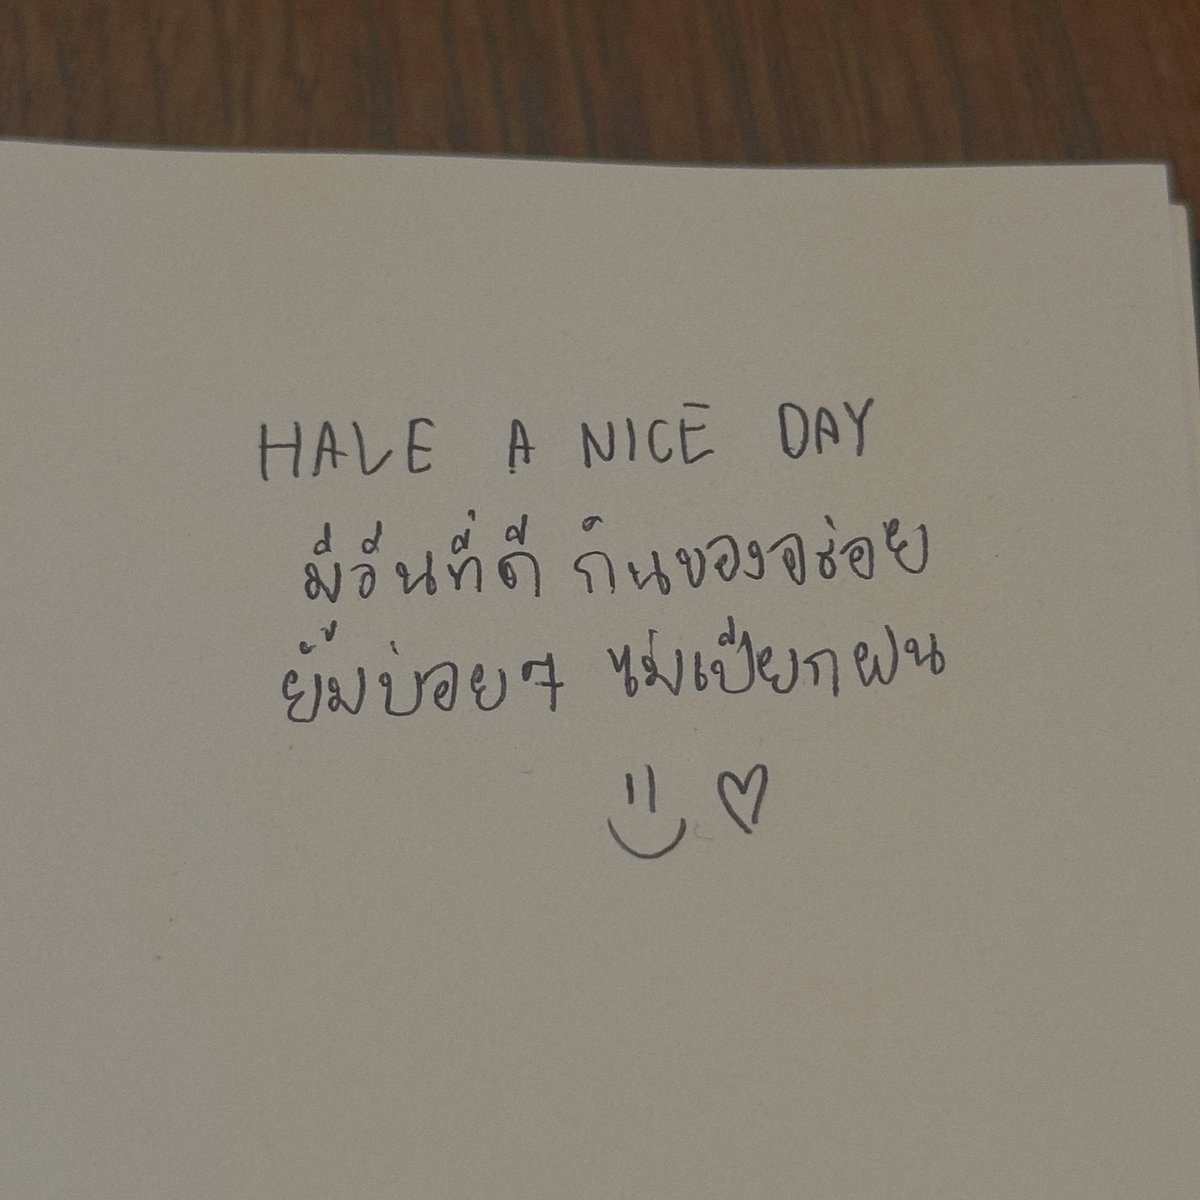 HAVE A NICE DAY
มีวันที่ดี กินของอร่อย
ยิ้มบ่อยๆ ไม่เปียกฝน